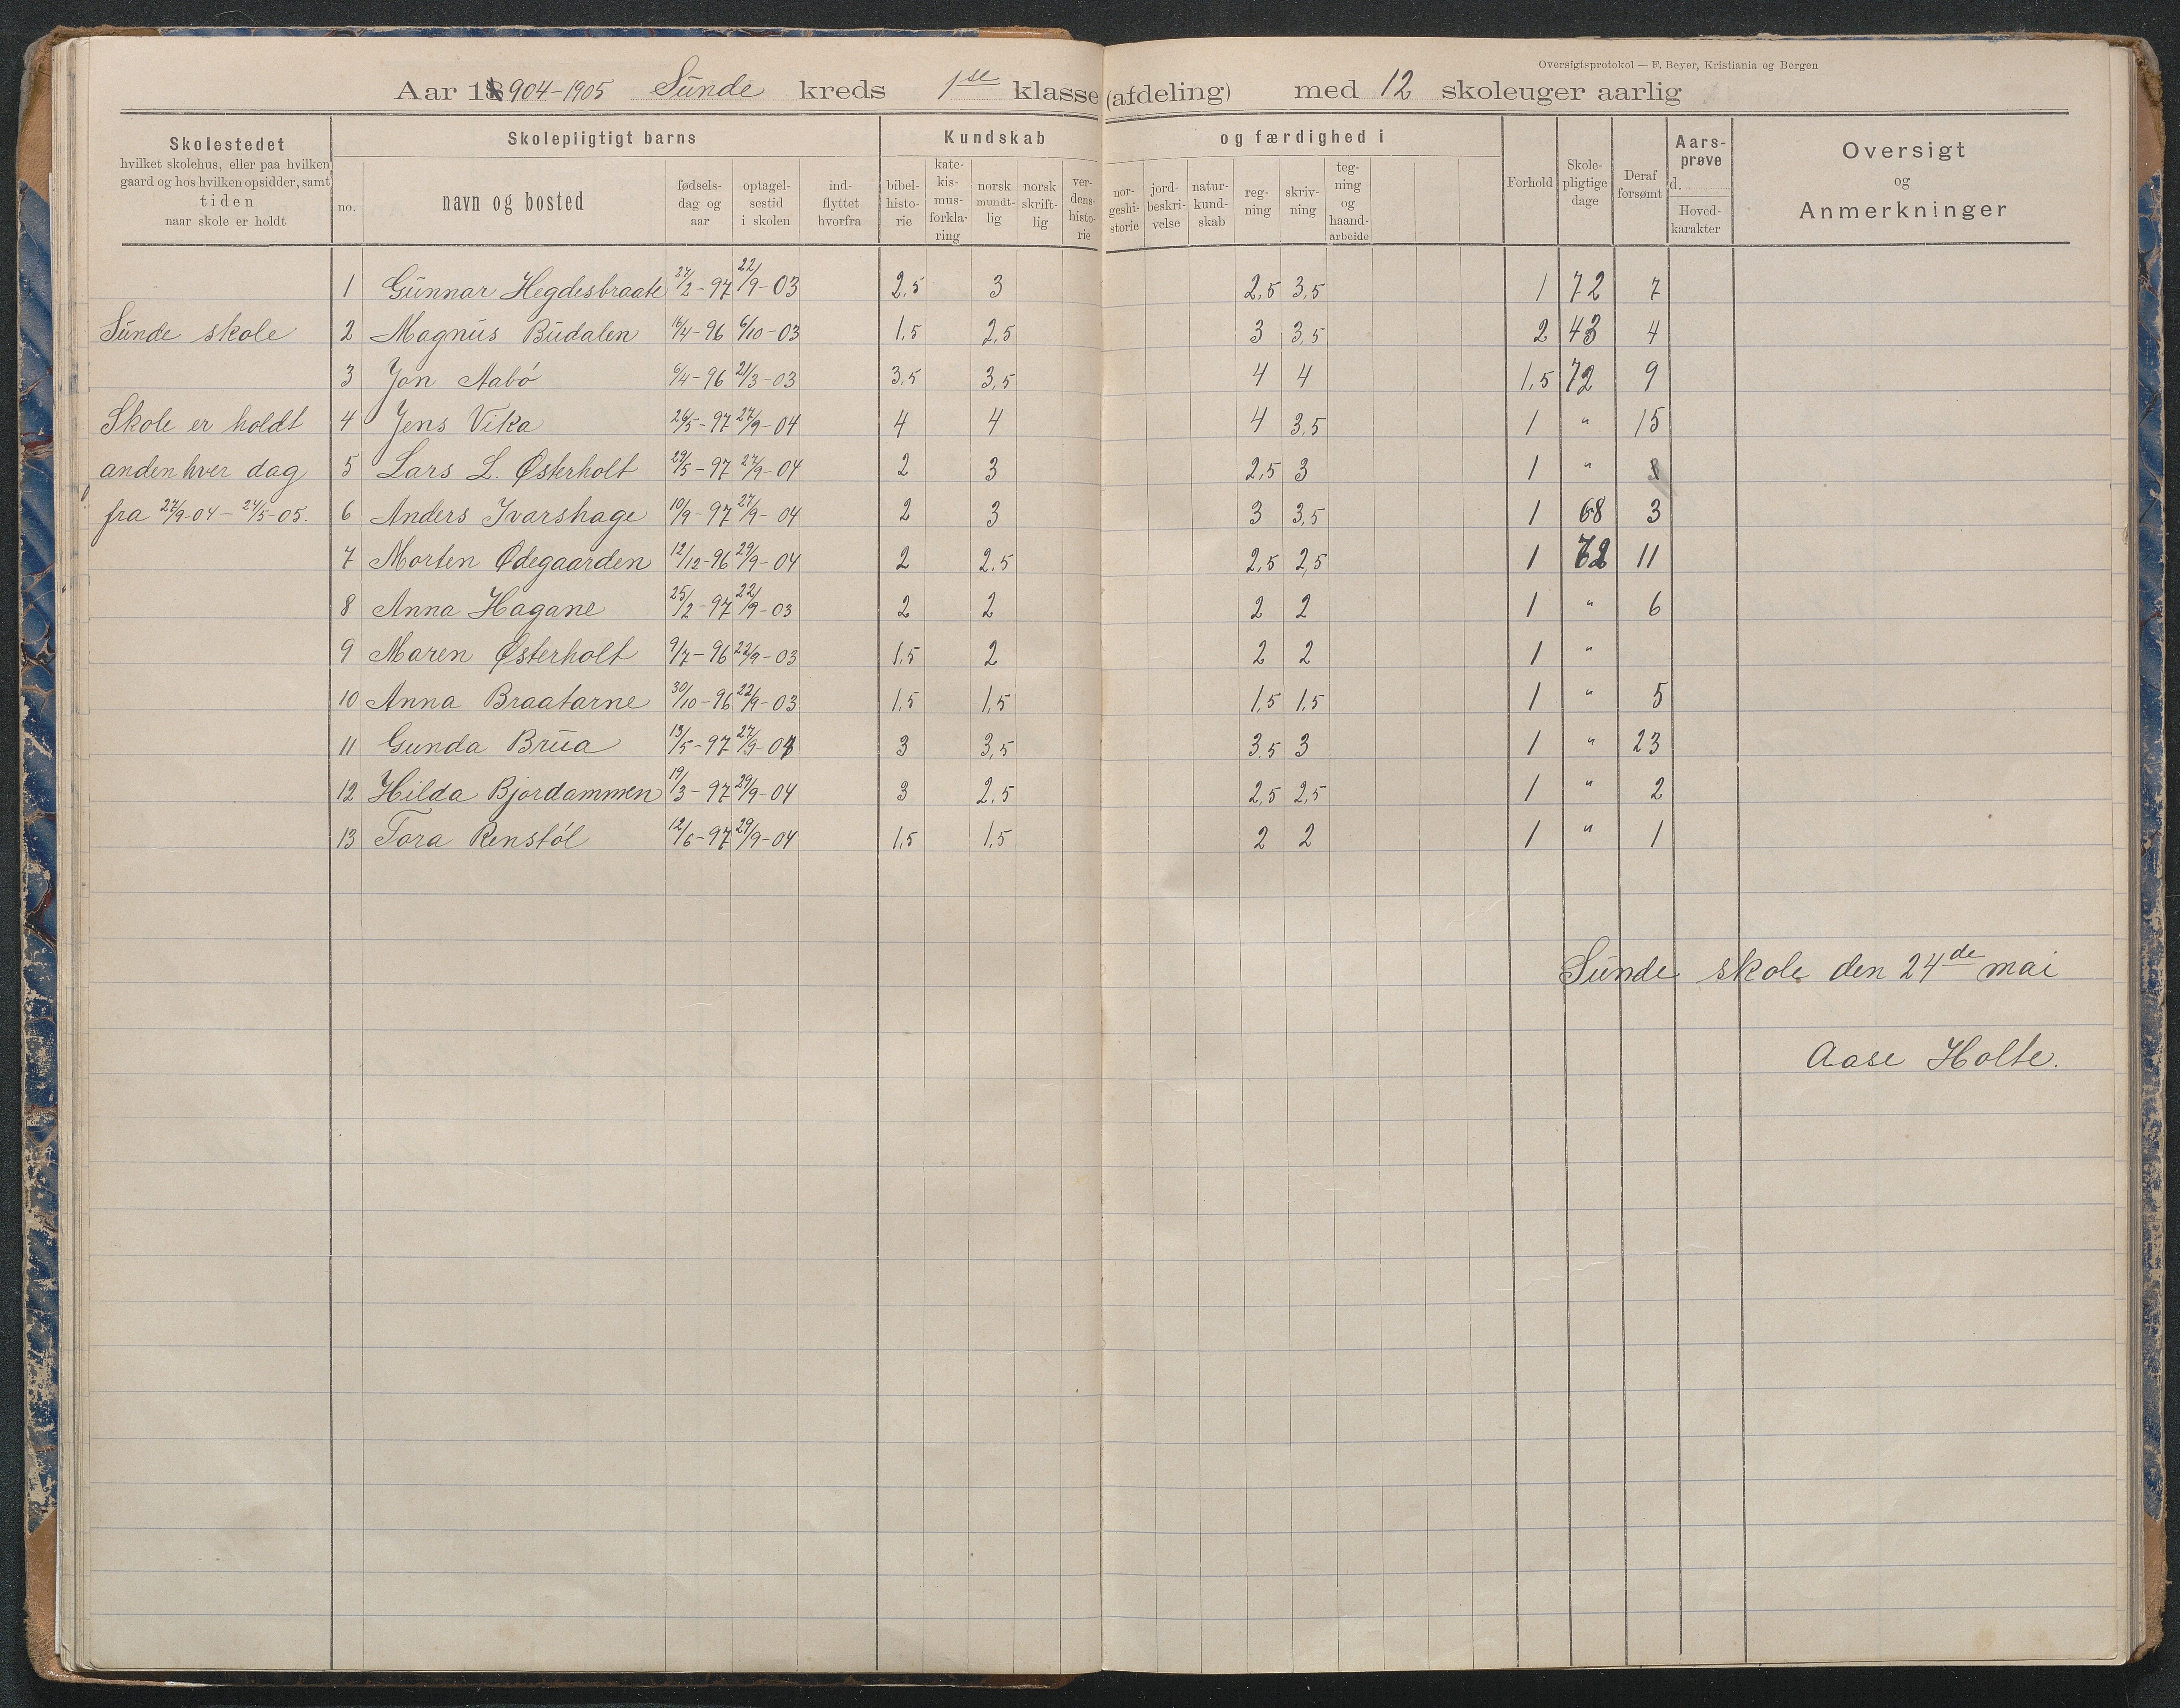 Oversigtsprotokol — F. Beyer, Kristiania og Bergen
Aar 1904-1905 Sunde kreds 1se klasse (afdeling) med 12 skoleuger aarlig
Skolestedet hvilket skolehus, eller paa hvilken gaard og hos hvilken opsidder, samt tiden naar skole er holdt
Skolepligtigt barns
Kundskab og færdighed i
no. navn og bosted fødsels-dag og aar optagel-sestid i skolen ind-flyttet hvorfra bibel-histo-rie kate-kis-mus-forkla-ring norsk mundt-lig norsk skrift-lig ver-dens-histo-rie nor-geshi-storie jord-beskri-velse natur-kund-skab reg-ning skriv-ning teg-ning og haand-arbeide Forhold Skole-pligtige dage Deraf forsømt Aars-prøve d. Hoved-karakter Oversigt og Anmerkninger
1 Gunnar Hegdesbraate 27/2-97 22/9-03 2,5 3 2,5 3,5 1 72 7
Sunde skole 2 Magnus Budalen 16/4-96 6/10-03 1,5 2,5 3 3,5 2 43 4
3 Jon Aabó 6/4-96 21/3-03 3,5 3,5 4 4 1,5 72 9
Skole er holdt 4 Jens Vika 26/5-97 27/9-04 4 4 4 3,5 1 " 15
anden hver dag 5 Lars L. Østerholt 29/5-97 27/9-04 2 3 2,5 3 1 " 8
fra 27/9-04 - 24/5-05. 6 Anders Ivarshage 10/9-97 27/9-04 2 3 3 3,5 1 68 3
7 Morten Ødegaarden 12/12-96 29/9-04 2 2.5 2,5 2,5 1 72 11
8 Anna Hagane 25/2-97 22/9-03 2 2 2 2 1 " 6
9 Maren Østerholt 9/7-96 22/9-03 1.5 2 2 2 1 "
10 Anna Braatarne 30/10-96 22/9-03 1,5 1,5 1,5 1.5 1 " 5
11 Gunda Brua 13/5-97 27/9-04 3 3,5 3.5 3 1 " 23
12 Hilda Bjordammen 19/3-97 29/9-04 3 2,5 2,5 2,5 1 " 2
13 Tora Renstól 12/6-97 29/9-04 1,5 1,5 2 2 1 " 1
Sunde skole den 24de mai
Aase Holte.